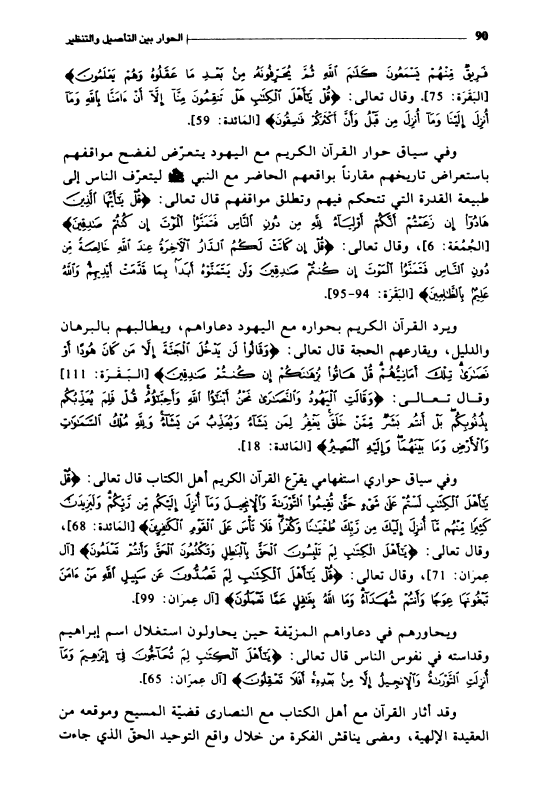 90 الحوار بين التأصيل والتنظير
فَرِيقٌ مِّنْهُمْ يَسْمَعُونَ كَلَامَ اللَّهِ ثُمَّ يُحَرِّفُونَهُ مِنْ بَعْدِ مَا عَقَلُوهُ وَهُمْ يَعْلَمُونَ﴾
[البَقَرَة: 75]. وقال تعالى: ﴿قُلْ يَٰٓأَهْلَ ٱلْكِتَٰبِ هَلْ تَنقِمُونَ مِنَّآ إِلَّآ أَنْ ءَامَنَّا بِٱللَّهِ وَمَآ
أُنزِلَ إِلَيْنَا وَمَآ أُنزِلَ مِن قَبْلُ وَأَنَّ أَكْثَرَكُمْ فَٰسِقُونَ﴾ [المَائدة: 59].
وفي سياق حوار القرآن الكريم مع اليهود يتعرّض لفضح مواقفهم
باستعراض تاريخهم مقارناً بواقعهم الحاضر مع النبي ﷺ ليتعرّف الناس إلى
طبيعة القدرة التي تتحكم فيهم وتطلق مواقفهم قال تعالى: ﴿قُلْ يَٰٓأَيُّهَا ٱلَّذِينَ
هَادُوٓا۟ إِن زَعَمْتُمْ أَنَّكُمْ أَوْلِيَآءُ لِلَّهِ مِن دُونِ ٱلنَّاسِ فَتَمَنَّوُا۟ ٱلْمَوْتَ إِن كُنتُمْ صَٰدِقِينَ﴾
[الجُمُعَة: 6]، وقال تعالى: ﴿قُلْ إِن كَانَتْ لَكُمُ ٱلدَّارُ ٱلْـَٔاخِرَةُ عِندَ ٱللَّهِ خَالِصَةً مِّن
دُونِ ٱلنَّاسِ فَتَمَنَّوُا۟ ٱلْمَوْتَ إِن كُنتُمْ صَٰدِقِينَ وَلَن يَتَمَنَّوْهُ أَبَدًۢا بِمَا قَدَّمَتْ أَيْدِيهِمْ وَٱللَّهُ
عَلِيمٌۢ بِٱلظَّٰلِمِينَ﴾ [البَقَرَة: 94-95].
ويرد القرآن الكريم بحواره مع اليهود دعاواهم، ويطالبهم بالبرهان
والدليل، ويقارعهم الحجة قال تعالى: ﴿وَقَالُوا۟ لَن يَدْخُلَ ٱلْجَنَّةَ إِلَّا مَن كَانَ هُودًا أَوْ
نَصَٰرَىٰ تِلْكَ أَمَانِيُّهُمْ قُلْ هَاتُوا۟ بُرْهَٰنَكُمْ إِن كُنتُمْ صَٰدِقِينَ﴾ [البَقَرَة: 111]
وقال تعالى: ﴿وَقَالَتِ ٱلْيَهُودُ وَٱلنَّصَٰرَىٰ نَحْنُ أَبْنَٰٓؤُا۟ ٱللَّهِ وَأَحِبَّٰٓؤُهُۥ قُلْ فَلِمَ يُعَذِّبُكُم
بِذُنُوبِكُم بَلْ أَنتُم بَشَرٌ مِّمَّنْ خَلَقَ يَغْفِرُ لِمَن يَشَآءُ وَيُعَذِّبُ مَن يَشَآءُ وَلِلَّهِ مُلْكُ ٱلسَّمَٰوَٰتِ
وَٱلْأَرْضِ وَمَا بَيْنَهُمَا وَإِلَيْهِ ٱلْمَصِيرُ﴾ [المَائدة: 18].
وفي سياق حواري استفهامي يقرّع القرآن الكريم أهل الكتاب قال تعالى: ﴿قُلْ
يَٰٓأَهْلَ ٱلْكِتَٰبِ لَسْتُمْ عَلَىٰ شَىْءٍ حَتَّىٰ تُقِيمُوا۟ ٱلتَّوْرَىٰةَ وَٱلْإِنجِيلَ وَمَآ أُنزِلَ إِلَيْكُم مِّن رَّبِّكُمْ وَلَيَزِيدَنَّ
كَثِيرًا مِّنْهُم مَّآ أُنزِلَ إِلَيْكَ مِن رَّبِّكَ طُغْيَٰنًا وَكُفْرًا فَلَا تَأْسَ عَلَى ٱلْقَوْمِ ٱلْكَٰفِرِينَ﴾ [المَائدة: 68]،
وقال تعالى: ﴿يَٰٓأَهْلَ ٱلْكِتَٰبِ لِمَ تَلْبِسُونَ ٱلْحَقَّ بِٱلْبَٰطِلِ وَتَكْتُمُونَ ٱلْحَقَّ وَأَنتُمْ تَعْلَمُونَ﴾ [آل
عِمرَان: 71]، وقال تعالى: ﴿قُلْ يَٰٓأَهْلَ ٱلْكِتَٰبِ لِمَ تَصُدُّونَ عَن سَبِيلِ ٱللَّهِ مَنْ ءَامَنَ
تَبْغُونَهَا عِوَجًا وَأَنتُمْ شُهَدَآءُ وَمَا ٱللَّهُ بِغَٰفِلٍ عَمَّا تَعْمَلُونَ﴾ [آل عِمرَان: 99].
ويحاورهم في دعاواهم المزيّفة حين يحاولون استغلال اسم إبراهيم
وقداسته في نفوس الناس قال تعالى: ﴿يَٰٓأَهْلَ ٱلْكِتَٰبِ لِمَ تُحَآجُّونَ فِىٓ إِبْرَٰهِيمَ وَمَآ
أُنزِلَتِ ٱلتَّوْرَىٰةُ وَٱلْإِنجِيلُ إِلَّا مِنۢ بَعْدِهِۦٓ أَفَلَا تَعْقِلُونَ﴾ [آل عِمرَان: 65].
وقد أثار القرآن مع أهل الكتاب مع النصارى قضيّة المسيح وموقعه من
العقيدة الإلهية، ومضى يناقش الفكرة من خلال واقع التوحيد الحقّ الذي جاءت